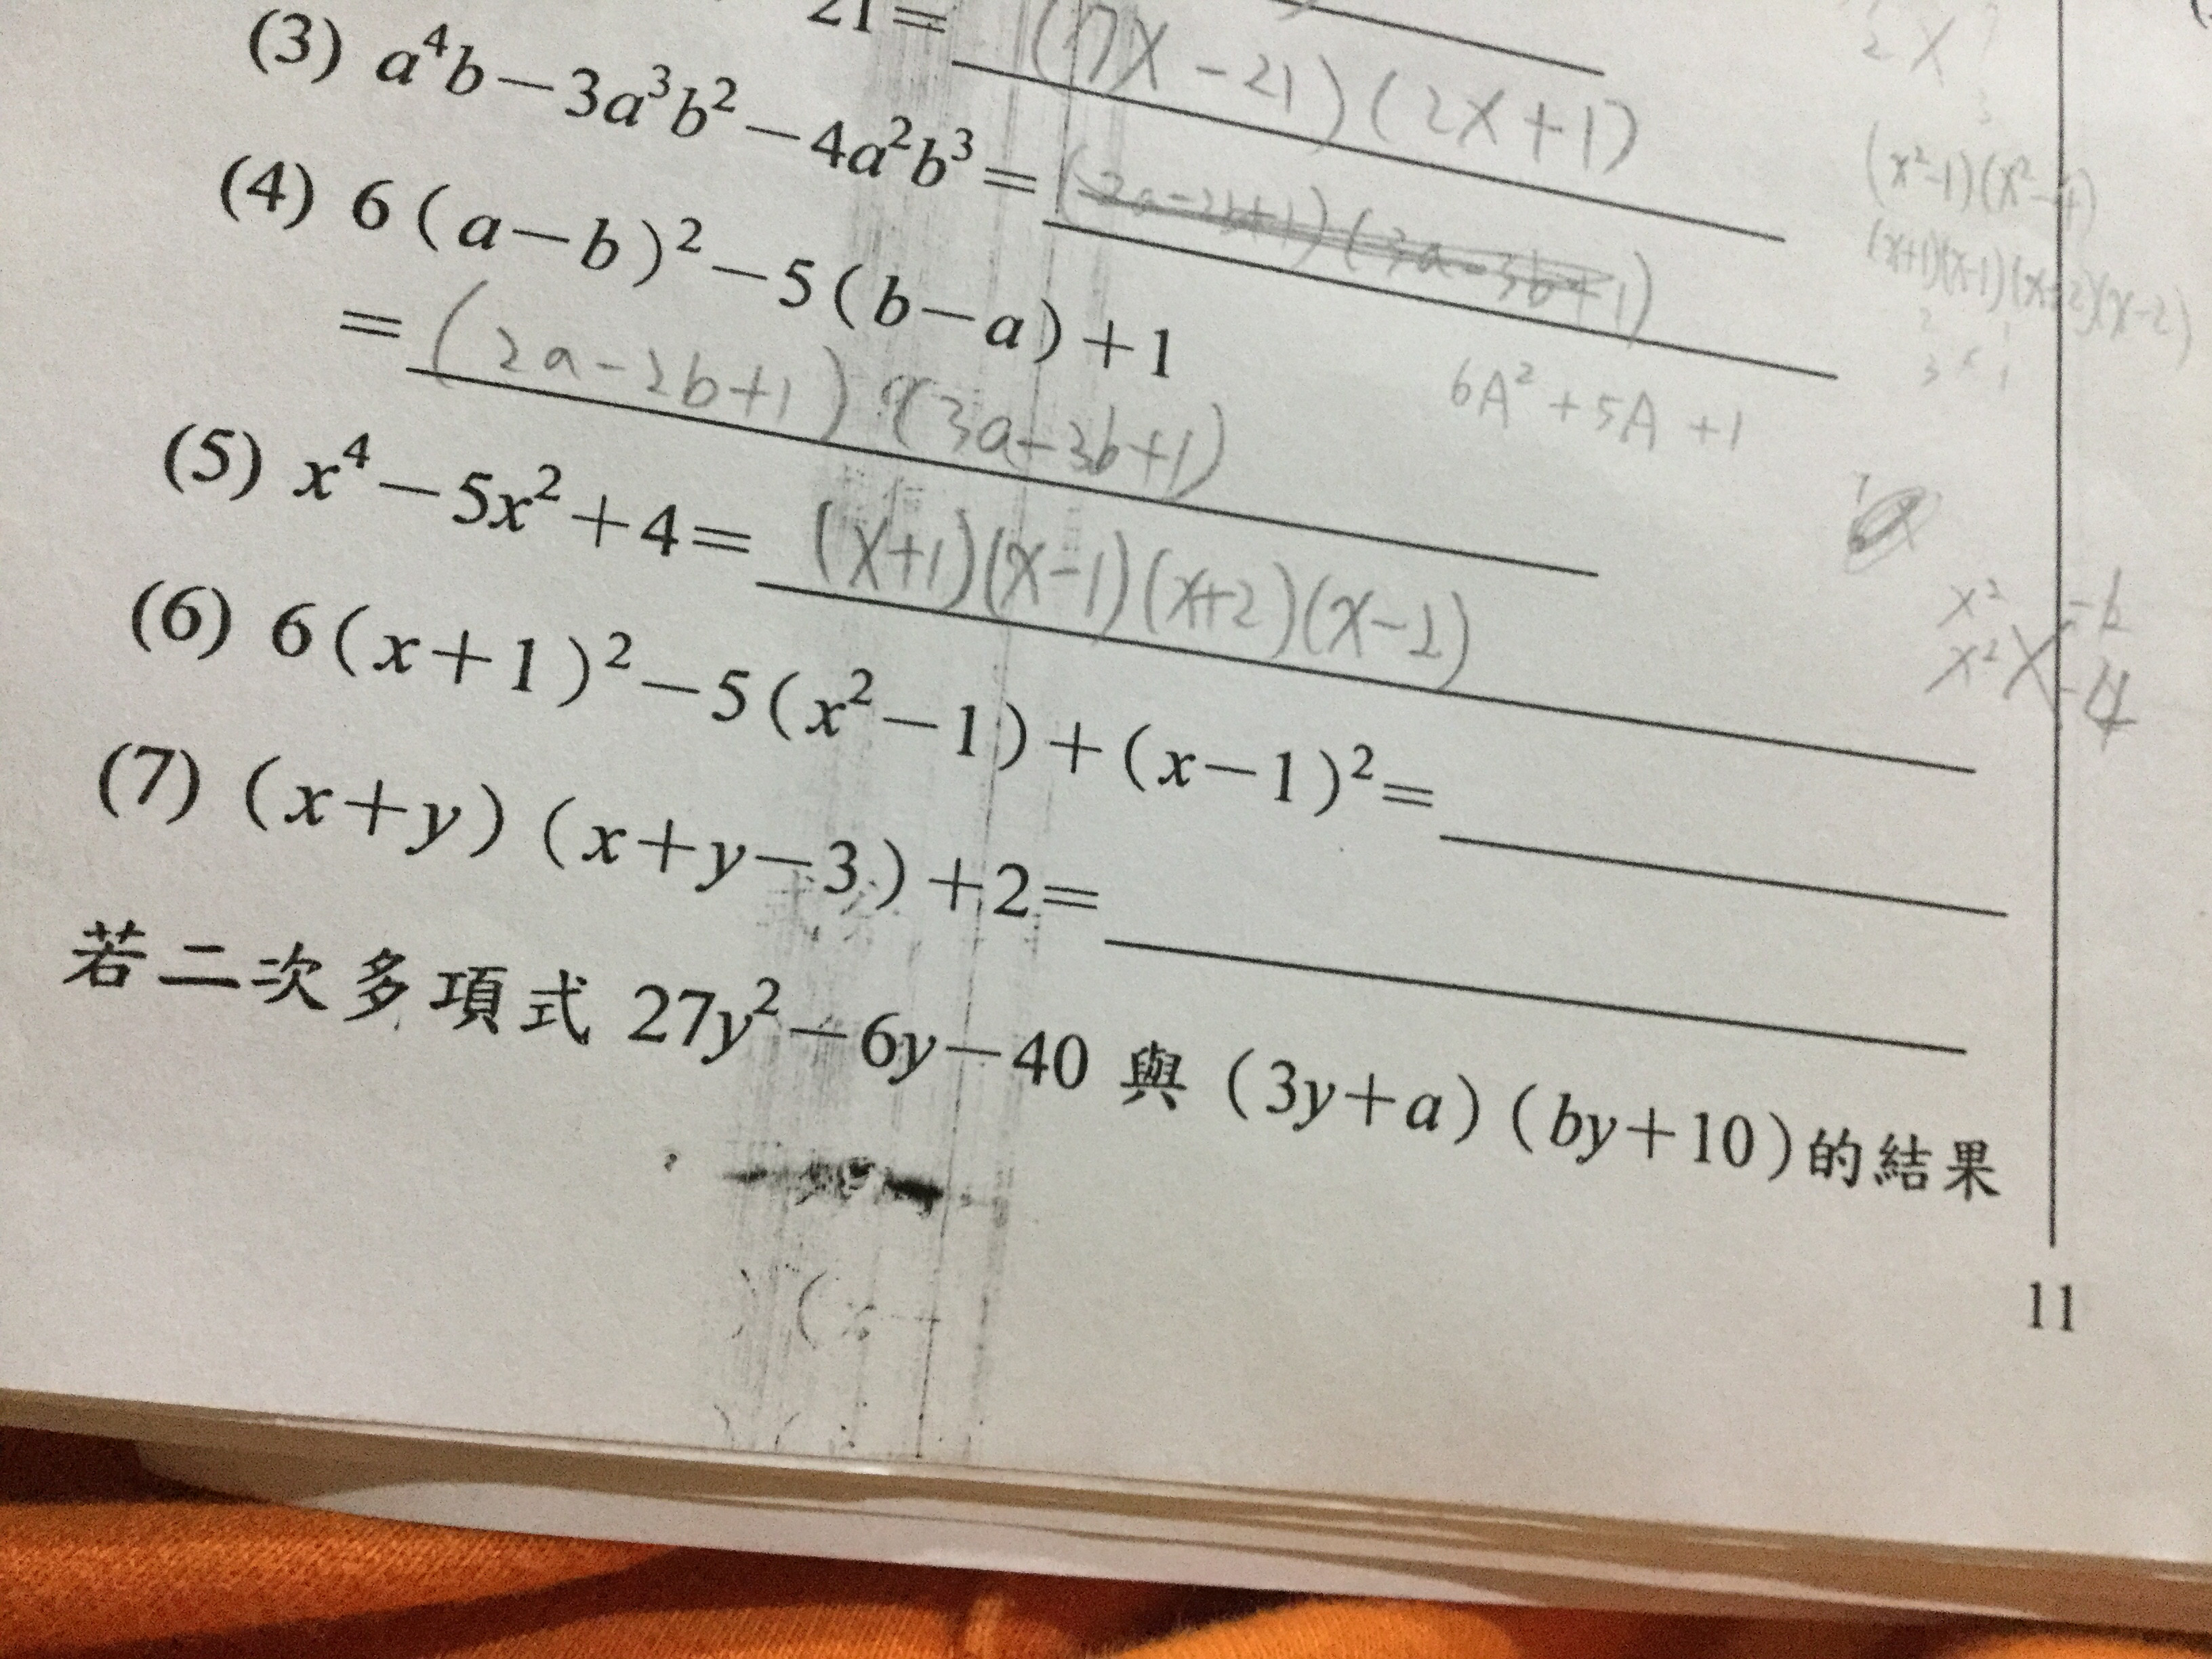 21= (7x-21)(2x+1)
(3) a⁴b-3a³b²-4a²b³= (2a-2b+1)(3a-3b+1)
(4) 6(a-b)²-5(b-a)+1
= (2a-2b+1)(3a-3b+1)
6A²+5A+1
(5) x⁴-5x²+4= (x+1)(x-1)(x+2)(x-2)
(6) 6(x+1)²-5(x²-1)+(x-1)²=
(7) (x+y)(x+y-3)+2=
若二次多項式 27y²-6y-40 與 (3y+a)(by+10)的結果
11
(x²-1)(x²-4)
(x+1)(x-1)(x+2)(x-2)
2 1
3 1
x²
x² -4